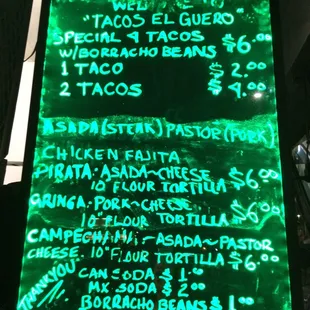 "TACOS EL GUERO"
SPECIAL 4 TACOS $6.00
W/BORRACHO BEANS
1 TACO $2.00
2 TACOS $4.00
ASADA(STEAK) PASTOR(PORK)
CHICKEN FAJITA
PIRATA-ASADA~CHEESE
10" FLOUR TORTILLA $6.00
GRINGA-PORK~CHEESE
10" FLOUR TORTILLA $6.00
-ASADA~PASTOR
CHEESE. 10" FLOUR TORTILLA $6.00
THANKYOU
CAN SODA $1.00
MX SODA $2.00
BORRACHO BEANS $1.00